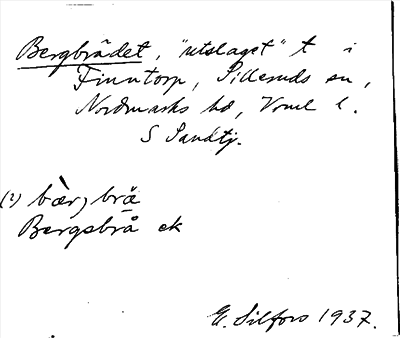 Bergbrådet, "utslaget" t i
Finntorp, Silleruds sn,
Nordmarks hd, Vrml l.
S Sandtj.
(2) bær, brä
Bergsbrå ek
E. Silfors 1937.